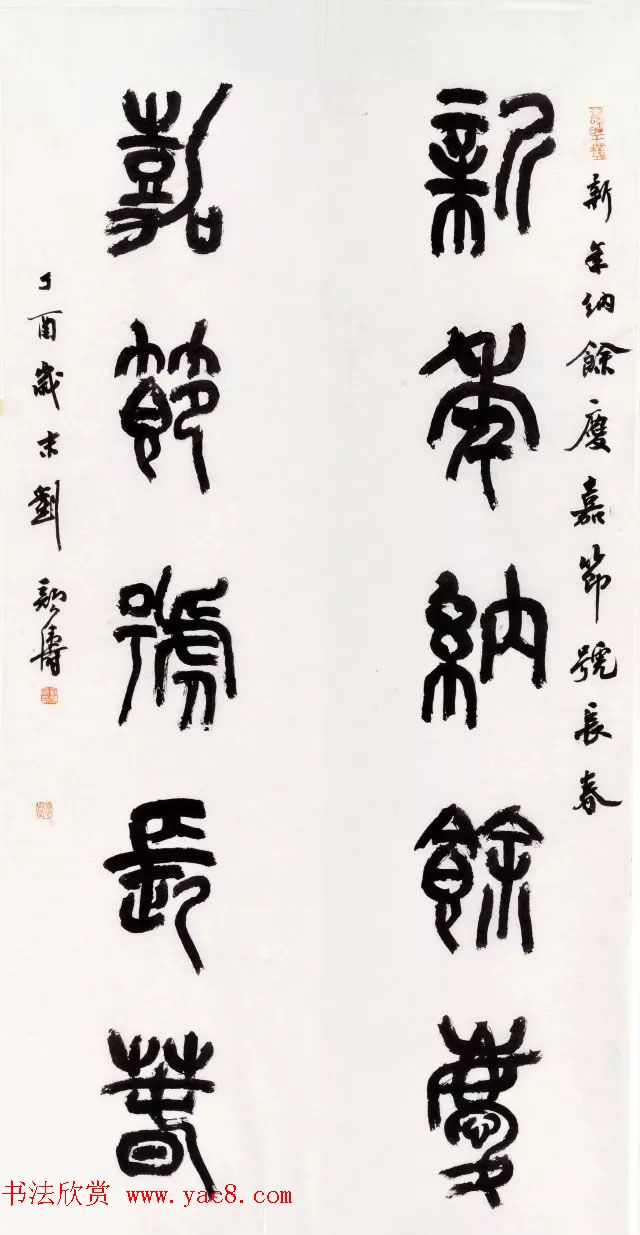 新年納餘慶嘉節號長春
新年納餘慶
嘉節號長春
丁酉歲末劉
书法欣赏 www.yac8.com